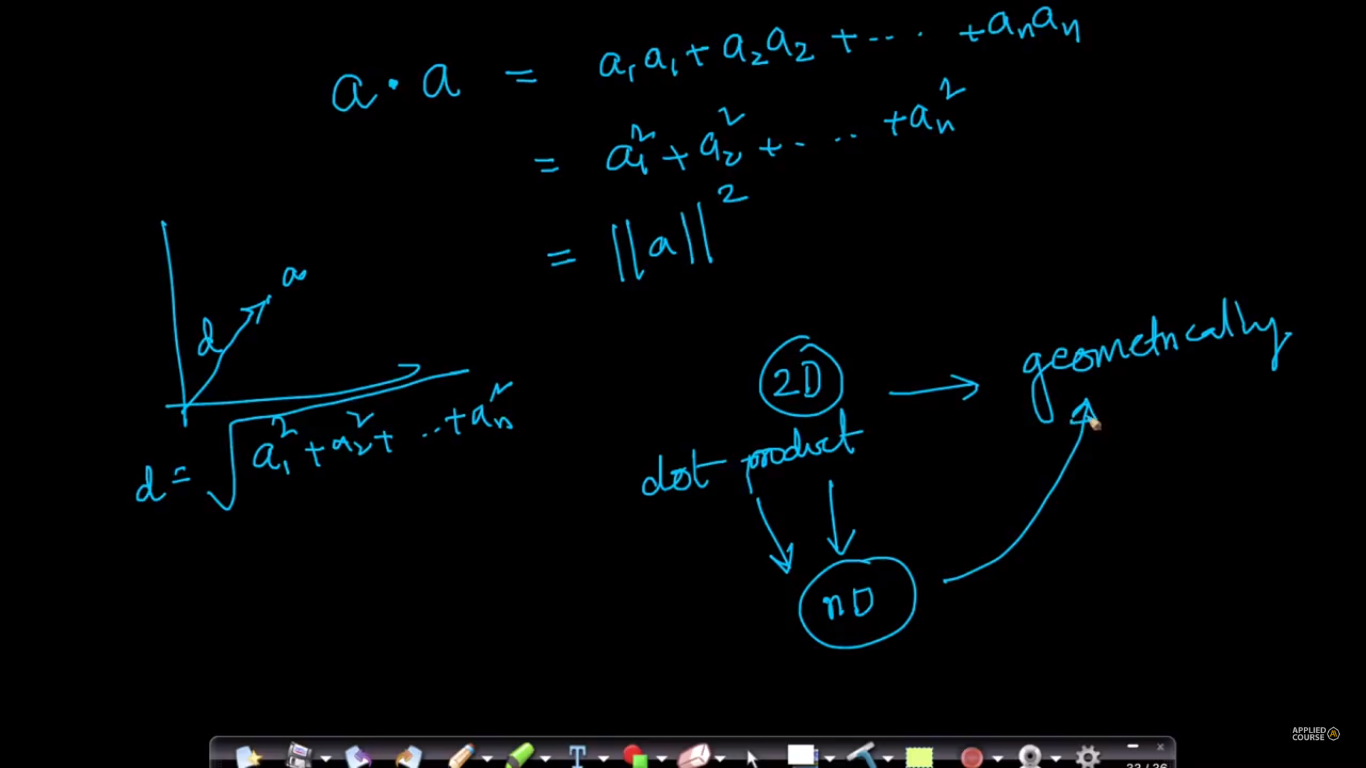 a · a = a₁a₁ + a₂a₂ + ... . + aₙaₙ
= a₁² + a₂² + . . . . + aₙ²
= ||a||²
a
d
d = √a₁² + a₂² + ... + aₙ²
2D → geometrically
dot product
nD
APPLIED
COURSE
T